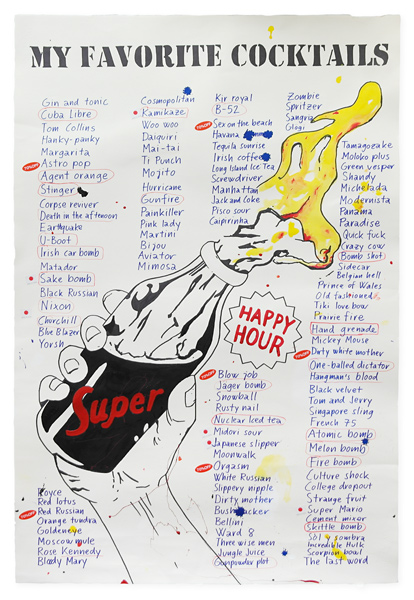 MY FAVORITE COCKTAILS
Gin and tonic
Cuba Libre
Tom Collins
Hanky-panky
Margarita
Astro pop
Agent orange
Stinger
Corpse reviver
Death in the afternoon
Earthquake
U-Boot
Irish car bomb
Matador
Sake bomb
Black Russian
Nixon
Churchill
Blue Blazer
Yorsh
Cosmopolitan
Kamikaze
Woo woo
Daiquiri
Mai-tai
Ti Punch
Mojito
Hurricane
Gunfire
Painkiller
Pink lady
Martini
Bijou
Aviator
Mimosa
Kir royal
B-52
Sex on the beach
Havana
Tequila sunrise
Irish coffee
Long Island Ice Tea
Screwdriver
Manhattan
Jack and Coke
Pisco sour
Caipirinha
Zombie
Spritzer
Sangria
Glogi
Tamagozake
Moloko plus
Green vesper
Shandy
Michelada
Modernista
Panama
Paradise
Quick fuck
Crazy cow
Bomb shot
Sidecar
Belgian hell
Prince of Wales
Old fashioned
Tiki love bow
Prairie fire
Hand grenade
Mickey Mouse
Dirty white mother
One-balled dictator
Hangman's blood
Black velvet
Tom and Jerry
Singapore sling
French 75
Atomic bomb
Melon bomb
Fire bomb
Culture shock
College dropout
Strange fruit
Super Mario
Cement mixer
Skittle bomb
Sol y sombra
Incredible Hulk
Scorpion bowl
The last word
HAPPY
HOUR
Super
Blow job
Jäger bomb
Snowball
Rusty nail
Nuclear Iced tea
Midori sour
Japanese slipper
Moonwalk
Orgasm
White Russian
Slippery nipple
Dirty mother
Bushwacker
Bellini
Ward 8
Three wise men
Jungle Juice
Gunpowder plot
Royce
Red lotus
Red Russian
Orange tundra
Goldeneye
Moscow mule
Rose Kennedy
Bloody Mary